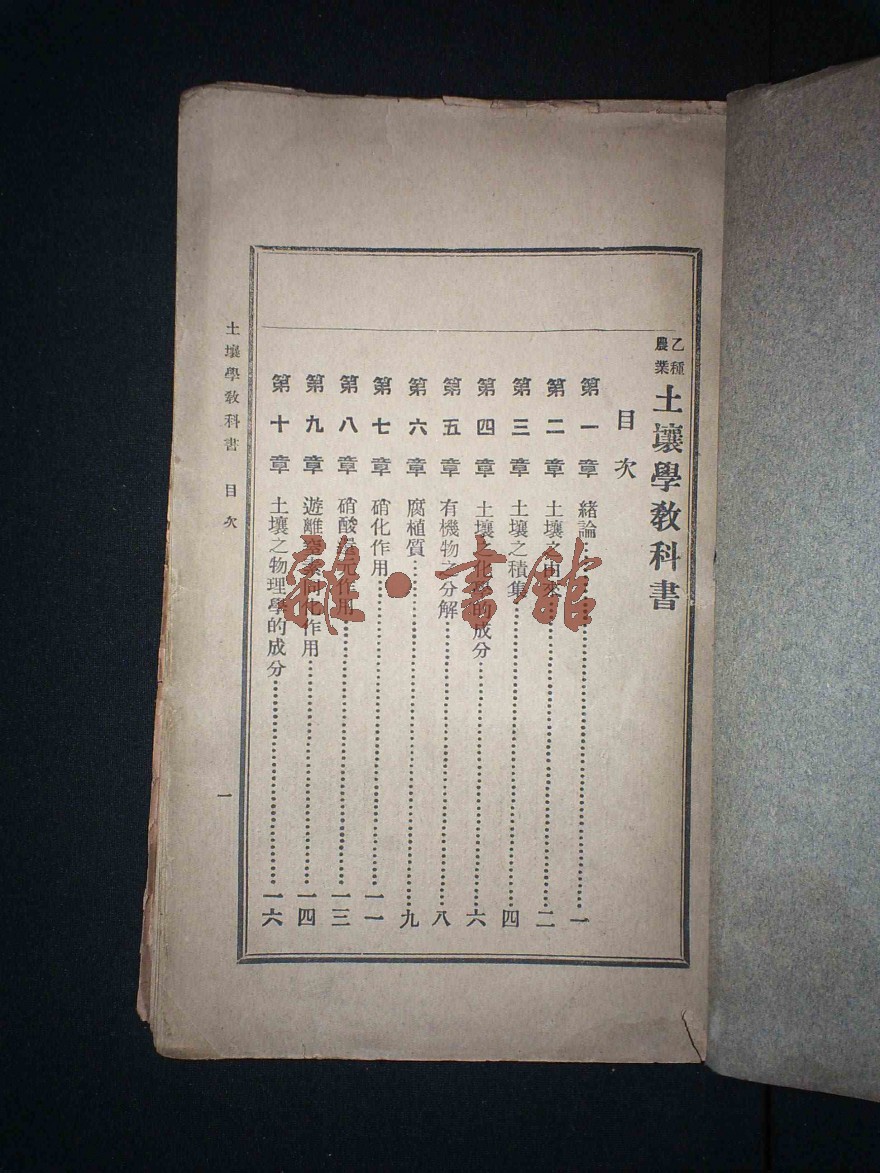 乙種農業 土壤學教科書
目次
第一章 緒論 一
第二章 土壤之由來 二
第三章 土壤之積集 四
第四章 土壤之化學的成分 六
第五章 有機物之分解 八
第六章 腐植質 九
第七章 硝化作用 一一
第八章 硝酸還元作用 一三
第九章 遊離窒素同化作用 一四
第十章 土壤之物理學的成分 一六
土壤學教科書 目次 一
雜·書館